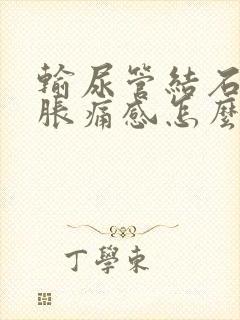 輸尿管結石
脹痛感怎麼
丁學東